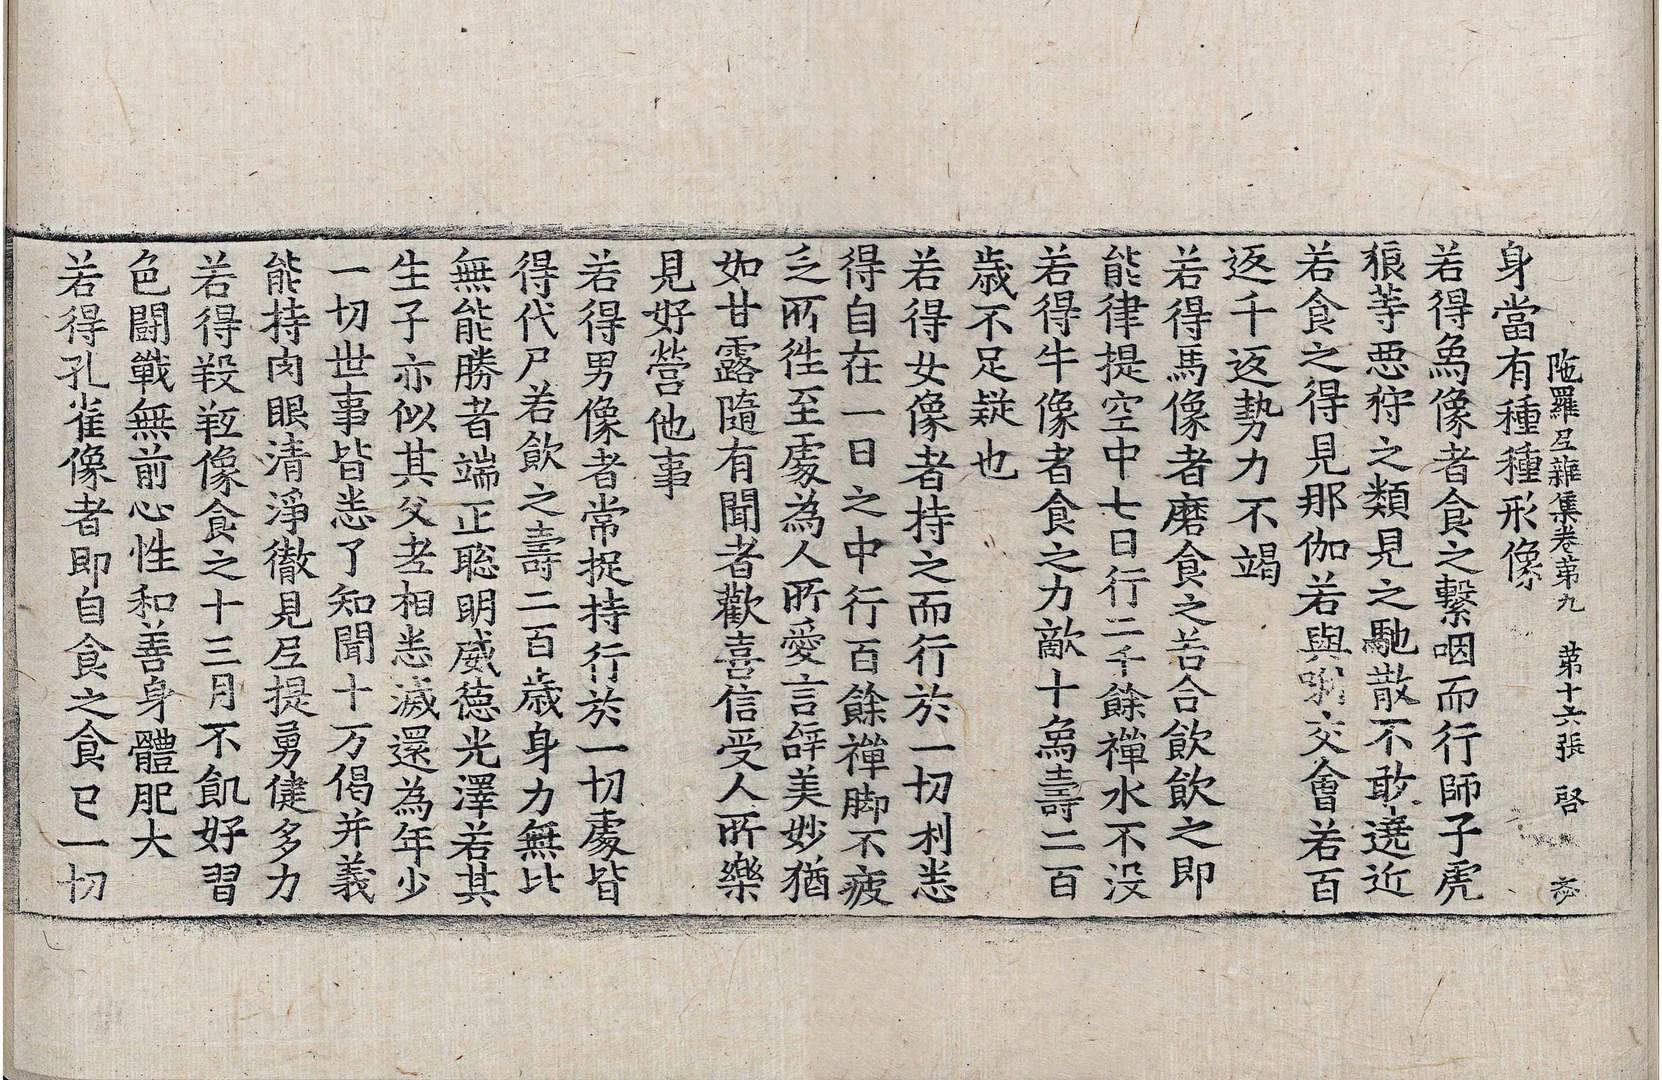 陁羅尼雜集卷第九　第十六張　啓
身當有種種形像
若得烏像者食之繫咽而行師子虎
狼等惡狩之類見之馳散不敢遶近
若食之得見那伽若與交會若百
返千返勢力不竭
若得馬像者磨食之若合飲飲之即
能律提空中七日行二千餘禪水不没
若得牛像者食之力敵十烏壽二百
歲不足疑也
若得女像者持之而行於一切利恙
得自在一日之中行百餘禪脚不疲
乏所徃至處為人所愛言辭美妙猶
如甘露隨有聞者歡喜信受人所樂
見好營他事
若得男像者常捉持行於一切處皆
得代尸若飲之壽二百歲身力無比
無能勝者端正聡明威德光澤若其
生子亦似其父老相恙滅還為年少
一切世事皆恙了知聞十万偈并義
能持肉眼清淨徹見尼提勇健多力
若得羖羝像食之十三月不飢好習
色鬪戰無前心性和善身體肥大
若得孔雀像者即自食之食已一切